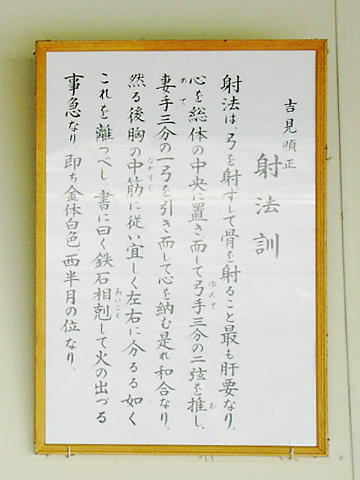 吉見順正
射法訓
射法は、弓を射ずして骨を射ること最も肝要なり、
心を総体の中央に置き、而して弓手三分の二弦を推し、
妻手三分の一弓を引き、而して心を納む是れ和合なり、
然る後胸の中筋に従い宜しく左右に分るる如く
これを離つべし、書に曰く鉄石相剋して火の出づる
事急なり、即ち金体白色、西半月の位なり。